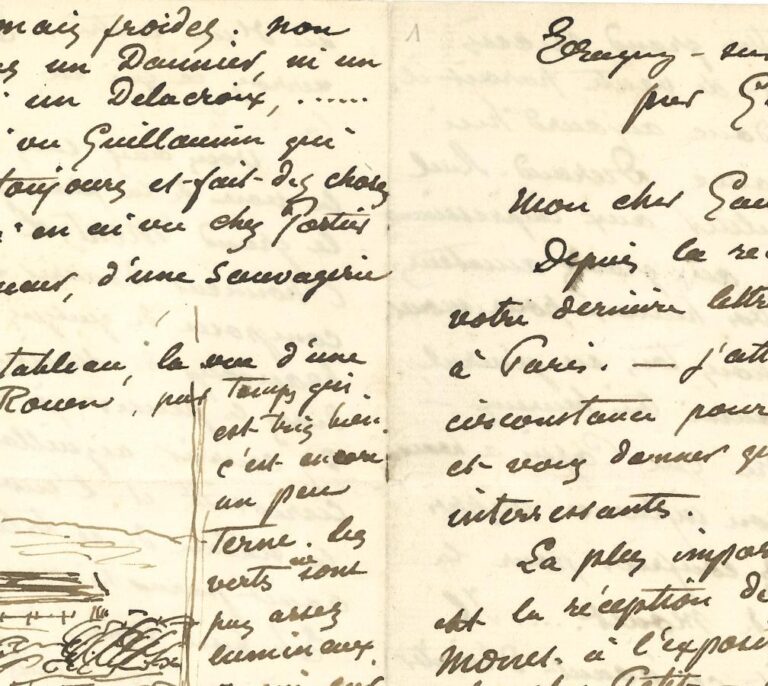 mais froides; non
un Daumier, ni un
un Delacroix, ......
vu Guillaumin qui
toujours et fait des choses
en ai vu chez Portier
d'une Sauvagerie
tableau, la vue d'une
Rouen, par temps gris
est très bien.
c'est encore
un peu
terne. les
verts ne sont
pas assez
lumineux.
1
Eragny - sur
par G
Mon cher Gau
Depuis la ré
votre dernière lettre
à Paris. — J'att
circonstance pour
et vous donner qu
interessantes.
La plus impor
est la réception de
Monet. à l'exposi
Petit